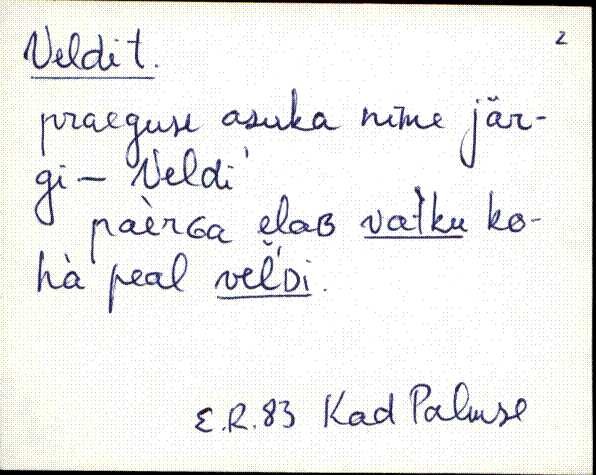 2
Veldi t.
praeguse asuka nime jär-
gi – Veldi
paèrGa elaB vatku ko-
hà peal vel̆'Di.
E.R.83 Kad Palmse